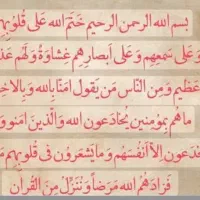 بسم الله الرحمن الرحيم ختم الله على قلوبهم
وعلى سمعهم وعلى أبصارهم غشاوة ولهم عذ
عظيم ومن الناس من يقول آمنا بالله وبالاخ
ماهم بمؤمنين يخادعون الله والذين امنوو
خدعون إلا أنفسهم وما يشعرون في قلوبهم م
فزادهم الله مرضاً وننزل من القران